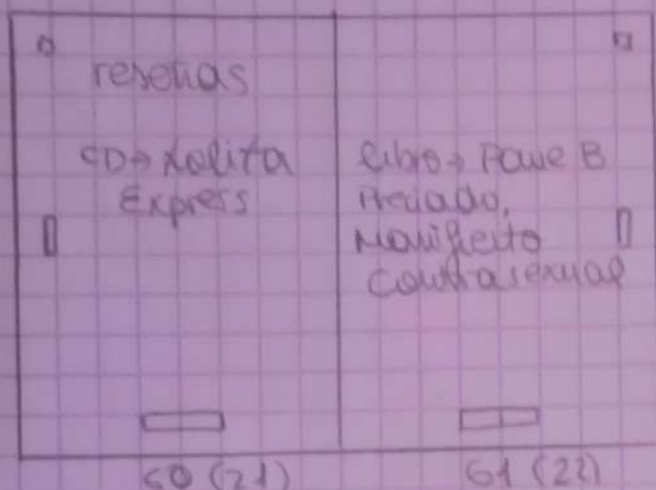 reseñas
CD→ Lolita
Express
Libro→ Paul B
Preciado,
Manifiesto
Contrasexual
60 (21)
61 (22)